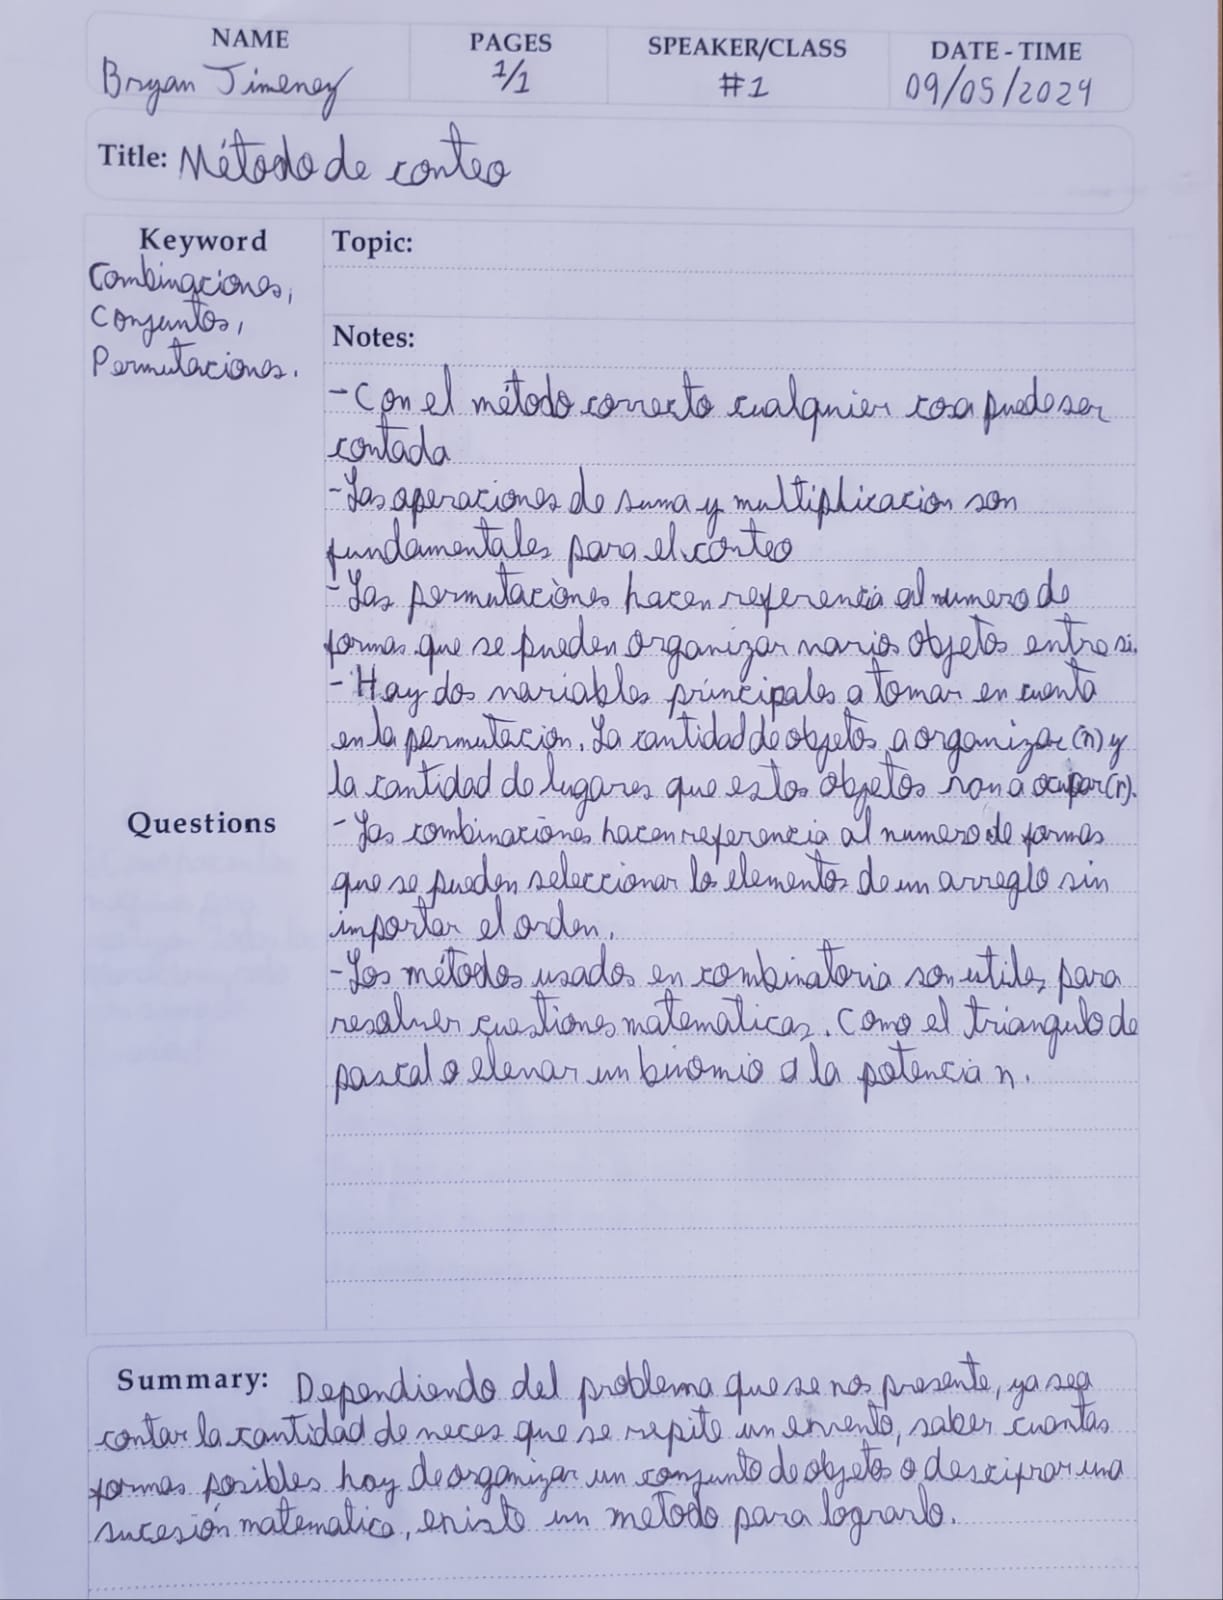 NAME PAGES SPEAKER/CLASS DATE - TIME
Bryan Jimenez 1/1 #1 09/05/2024
Title: Método de conteo
Keyword
Combinaciones,
Conjuntos,
Permutaciones.
Questions
Topic:
Notes:
- Con el método correcto cualquier cosa puede ser
contada
- Las operaciones de suma y multiplicacion son
fundamentales para el conteo
- Las permutaciones hacen referencia al numero de
formas que se pueden organizar varios objetos entre si.
- Hay dos variables principales a tomar en cuenta
en la permutación. La cantidad de objetos a organizar (n) y
la cantidad de lugares que estos objetos van a ocupar (r).
- Las combinaciones hacen referencia al numero de formas
que se pueden seleccionar los elementos de un arreglo sin
importar el orden.
- Los métodos usados en combinatoria son utiles para
resolver cuestiones matematicas. Como el triangulo de
pascal o elevar un binomio a la potencia n.
Summary: Dependiendo del problema que se nos presente, ya sea
contar la cantidad de veces que se repite un evento, saber cuantas
formas posibles hay de organizar un conjunto de objetos o descifrar una
sucesión matematica, existe un metodo para lograrlo.